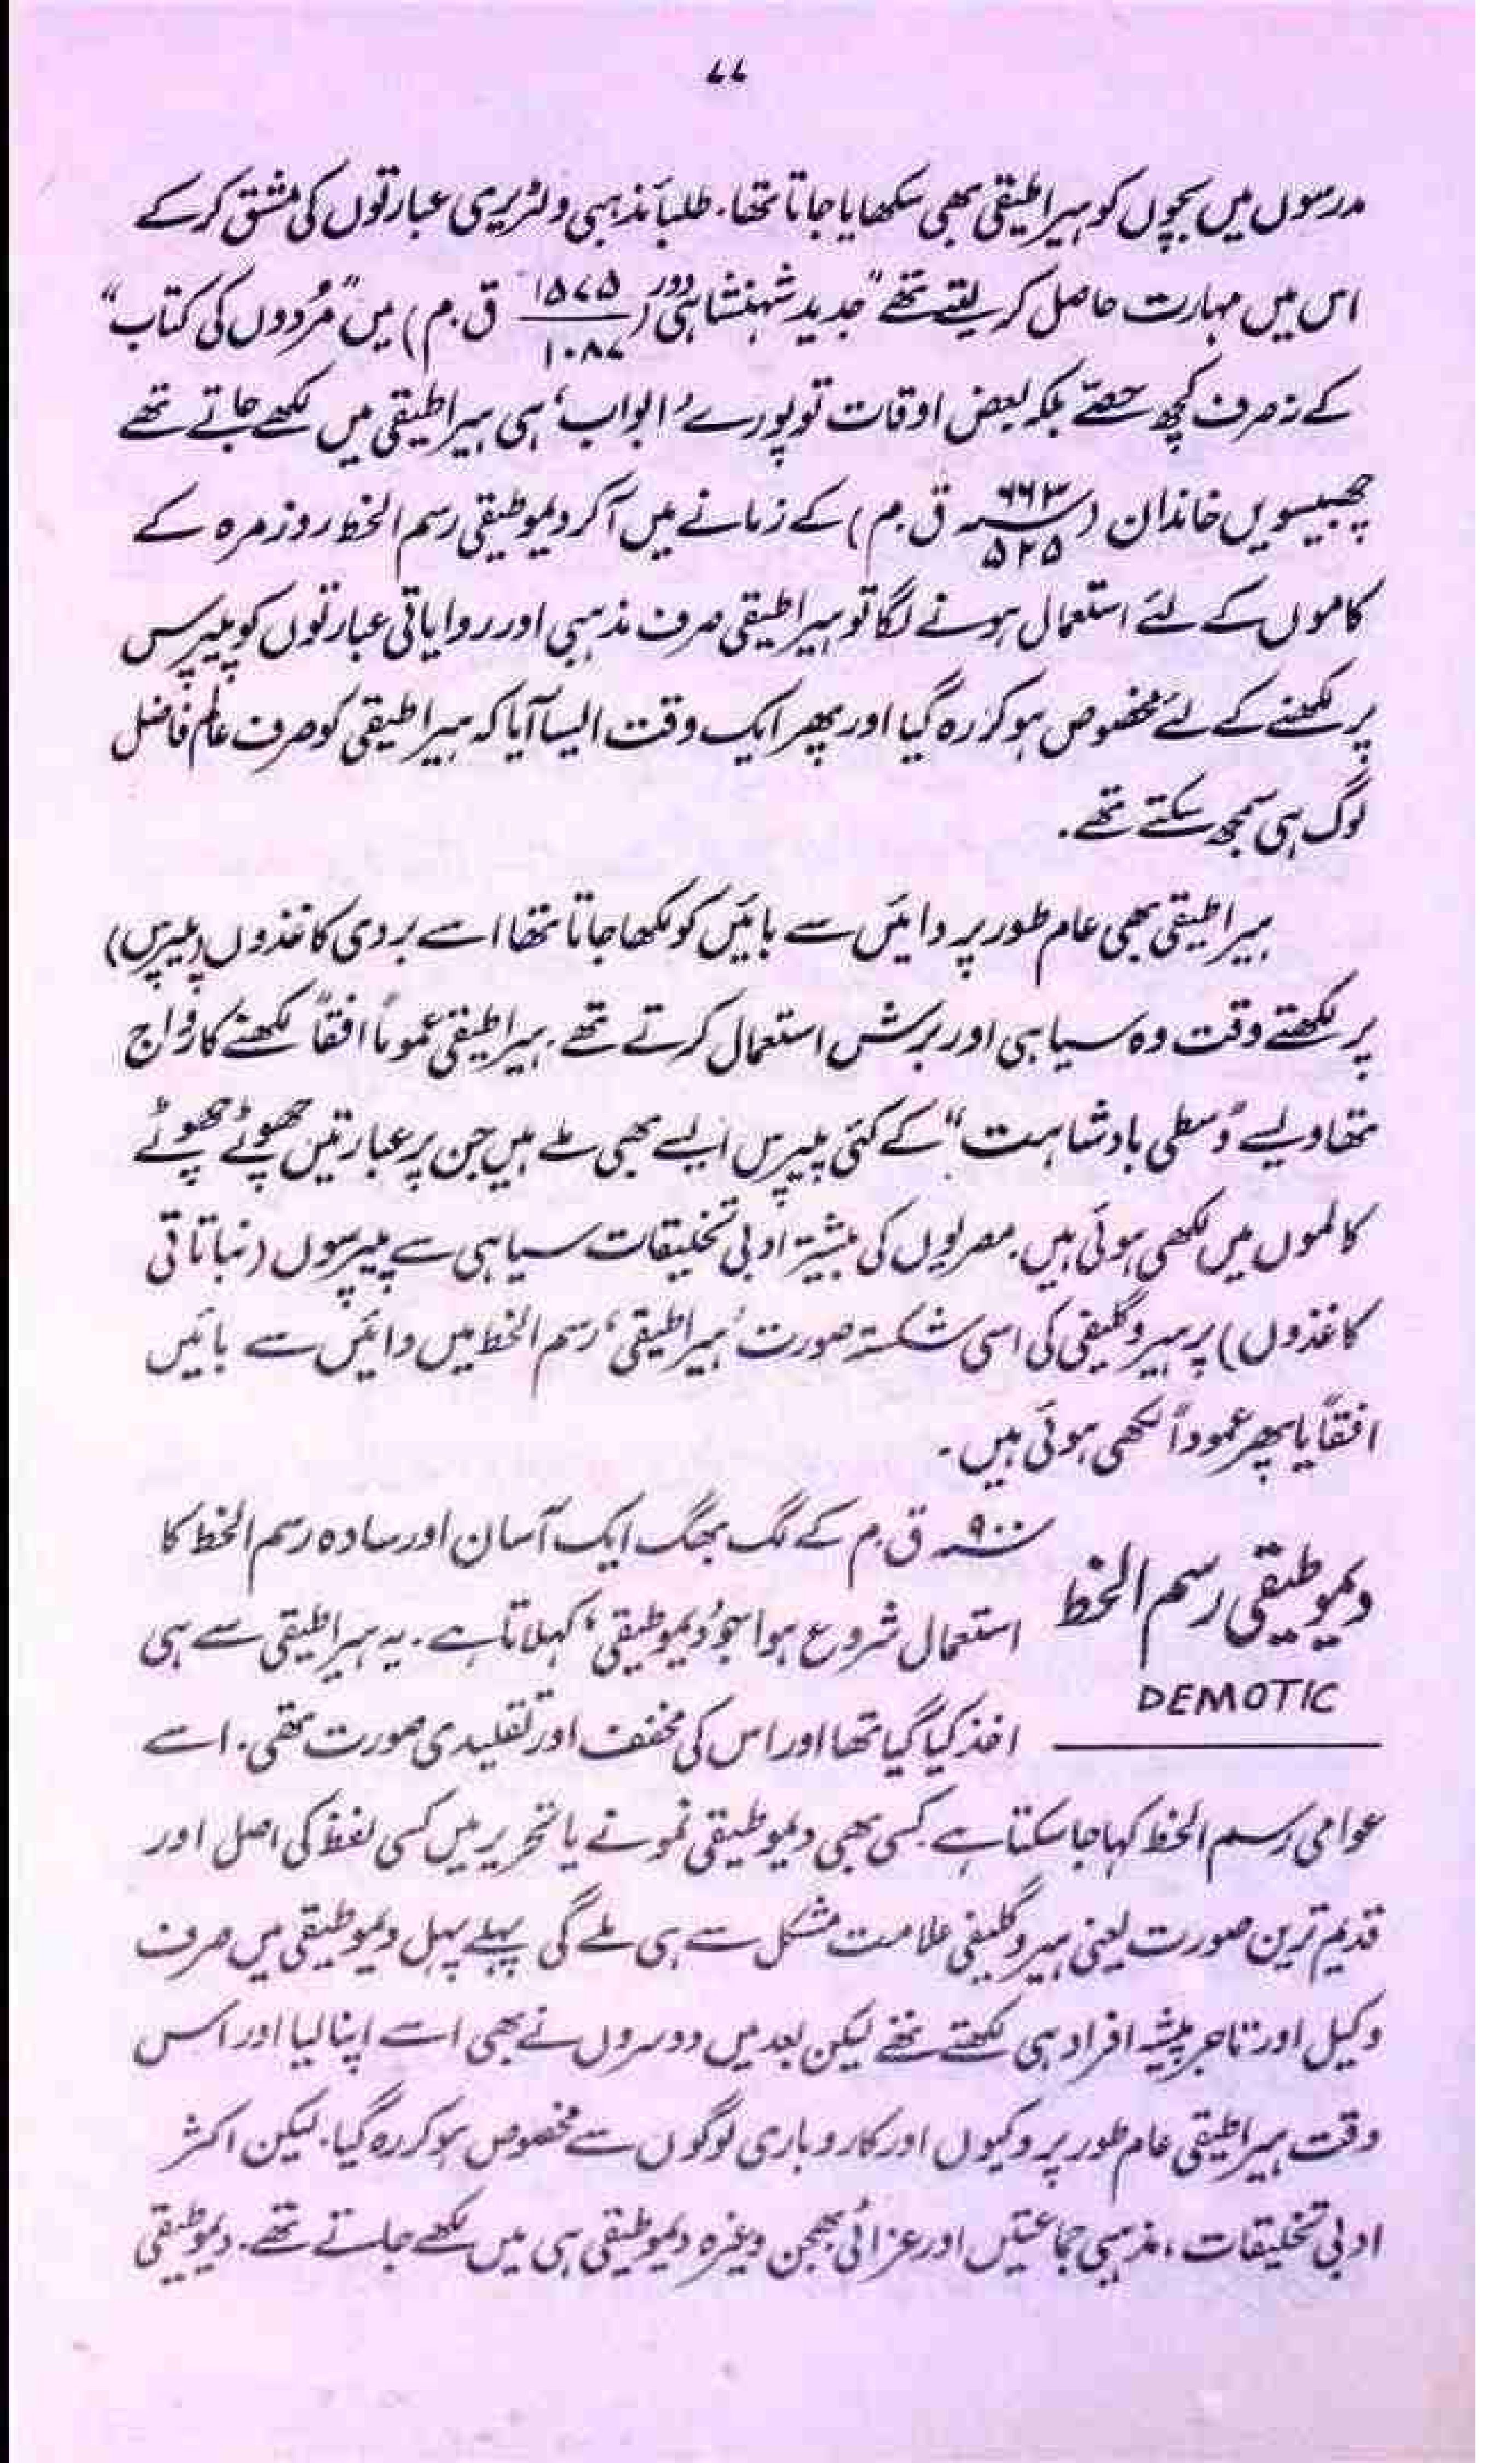 ۷۷
مدرسوں میں بچوں کو ہیراطیقی بھی سکھایا جاتا تھا۔ طلبأ مذہبی و لٹریری عبارتوں کی مشق کر کے
اس میں مہارت حاصل کر لیتے تھے "جدید شہنشاہی دور (۱۵۷۵/۱۰۸۷ ق۔م) میں "مُردوں کی کتاب"
کے نہ صرف کچھ حصّے بلکہ بعض اوقات تو پورے 'ابواب' ہی ہیراطیقی میں لکھے جاتے تھے
چھبیسویں خاندان (۶۶۳/۵۲۵ ق۔م) کے زمانے میں آکر دیموطیقی رسم الخط روزمرہ کے
کاموں کے لئے استعمال ہونے لگا تو ہیراطیقی صرف مذہبی اور روایاتی عبارتوں کو پیپرس
پر لکھنے کے لئے مخصوص ہو کر رہ گیا اور پھر ایک وقت ایسا آیا کہ ہیراطیقی کو صرف عالم فاضل
لوگ ہی سمجھ سکتے تھے۔
ہیراطیقی بھی عام طور پر دائیں سے بائیں کو لکھا جاتا تھا اسے بردی کاغذوں (پیپرس)
پر لکھتے وقت وہ سیاہی اور برش استعمال کرتے تھے۔ ہیراطیقی عموماً افقاً لکھنے کا رواج
تھا ویسے "وسطی بادشاہت" کے کئی پیپرس ایسے بھی ملے ہیں جن پر عبارتیں چھوٹے چھوٹے
کالموں میں لکھی ہوئی ہیں۔ مصریوں کی بیشتر ادبی تخلیقات سیاہی سے پیپرسوں (نباتاتی
کاغذوں) پر ہیروگلیفی کی اسی شکستہ صورت 'ہیراطیقی' رسم الخط میں دائیں سے بائیں
افقاً یا پھر عموداً لکھی ہوئی ہیں۔
دیموطیقی رسم الخط
DEMOTIC
۹۰۰ ق۔م کے لگ بھگ ایک آسان اور سادہ رسم الخط کا
استعمال شروع ہوا جو 'دیموطیقی' کہلاتا ہے۔ یہ ہیراطیقی سے ہی
اخذ کیا گیا تھا اور اس کی مخفف اور تقلیدی صورت تھی۔ اسے
عوامی رسم الخط کہا جا سکتا ہے۔ کسی بھی دیموطیقی نمونے یا تحریر میں کسی لفظ کی اصل اور
قدیم ترین صورت یعنی ہیروگلیفی علامت مشکل سے ہی ملے گی پہلے پہل دیموطیقی میں صرف
وکیل اور تاجر پیشہ افراد ہی لکھتے تھے لیکن بعد میں دوسروں نے بھی اسے اپنا لیا اور اس
وقت ہیراطیقی عام طور پر وکیوں اور کاروباری لوگوں سے مخصوص ہو کر رہ گیا۔ لیکن اکثر
ادبی تخلیقات، مذہبی جماعتیں اور عزائی بھجن وغیرہ دیموطیقی ہی میں لکھے جاتے تھے۔ دیموطیقی